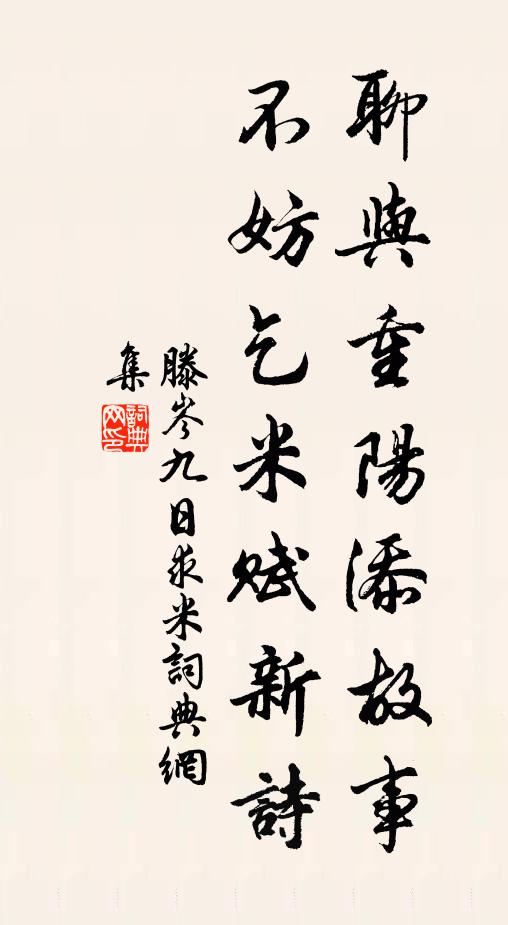 聊與重陽添故事
不妨乞米賦新詩
滕岑九日求米詞典網
集
詞典网印